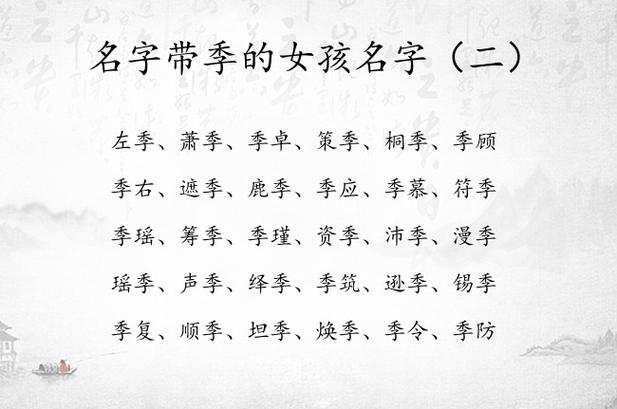 名字带季的女孩名字（二）
左季、萧季、季卓、策季、桐季、季顾
季右、遮季、鹿季、季应、季慕、符季
季瑶、筹季、季瑾、资季、沛季、漫季
瑶季、声季、绎季、季筑、逊季、锡季
季复、顺季、坦季、焕季、季令、季防